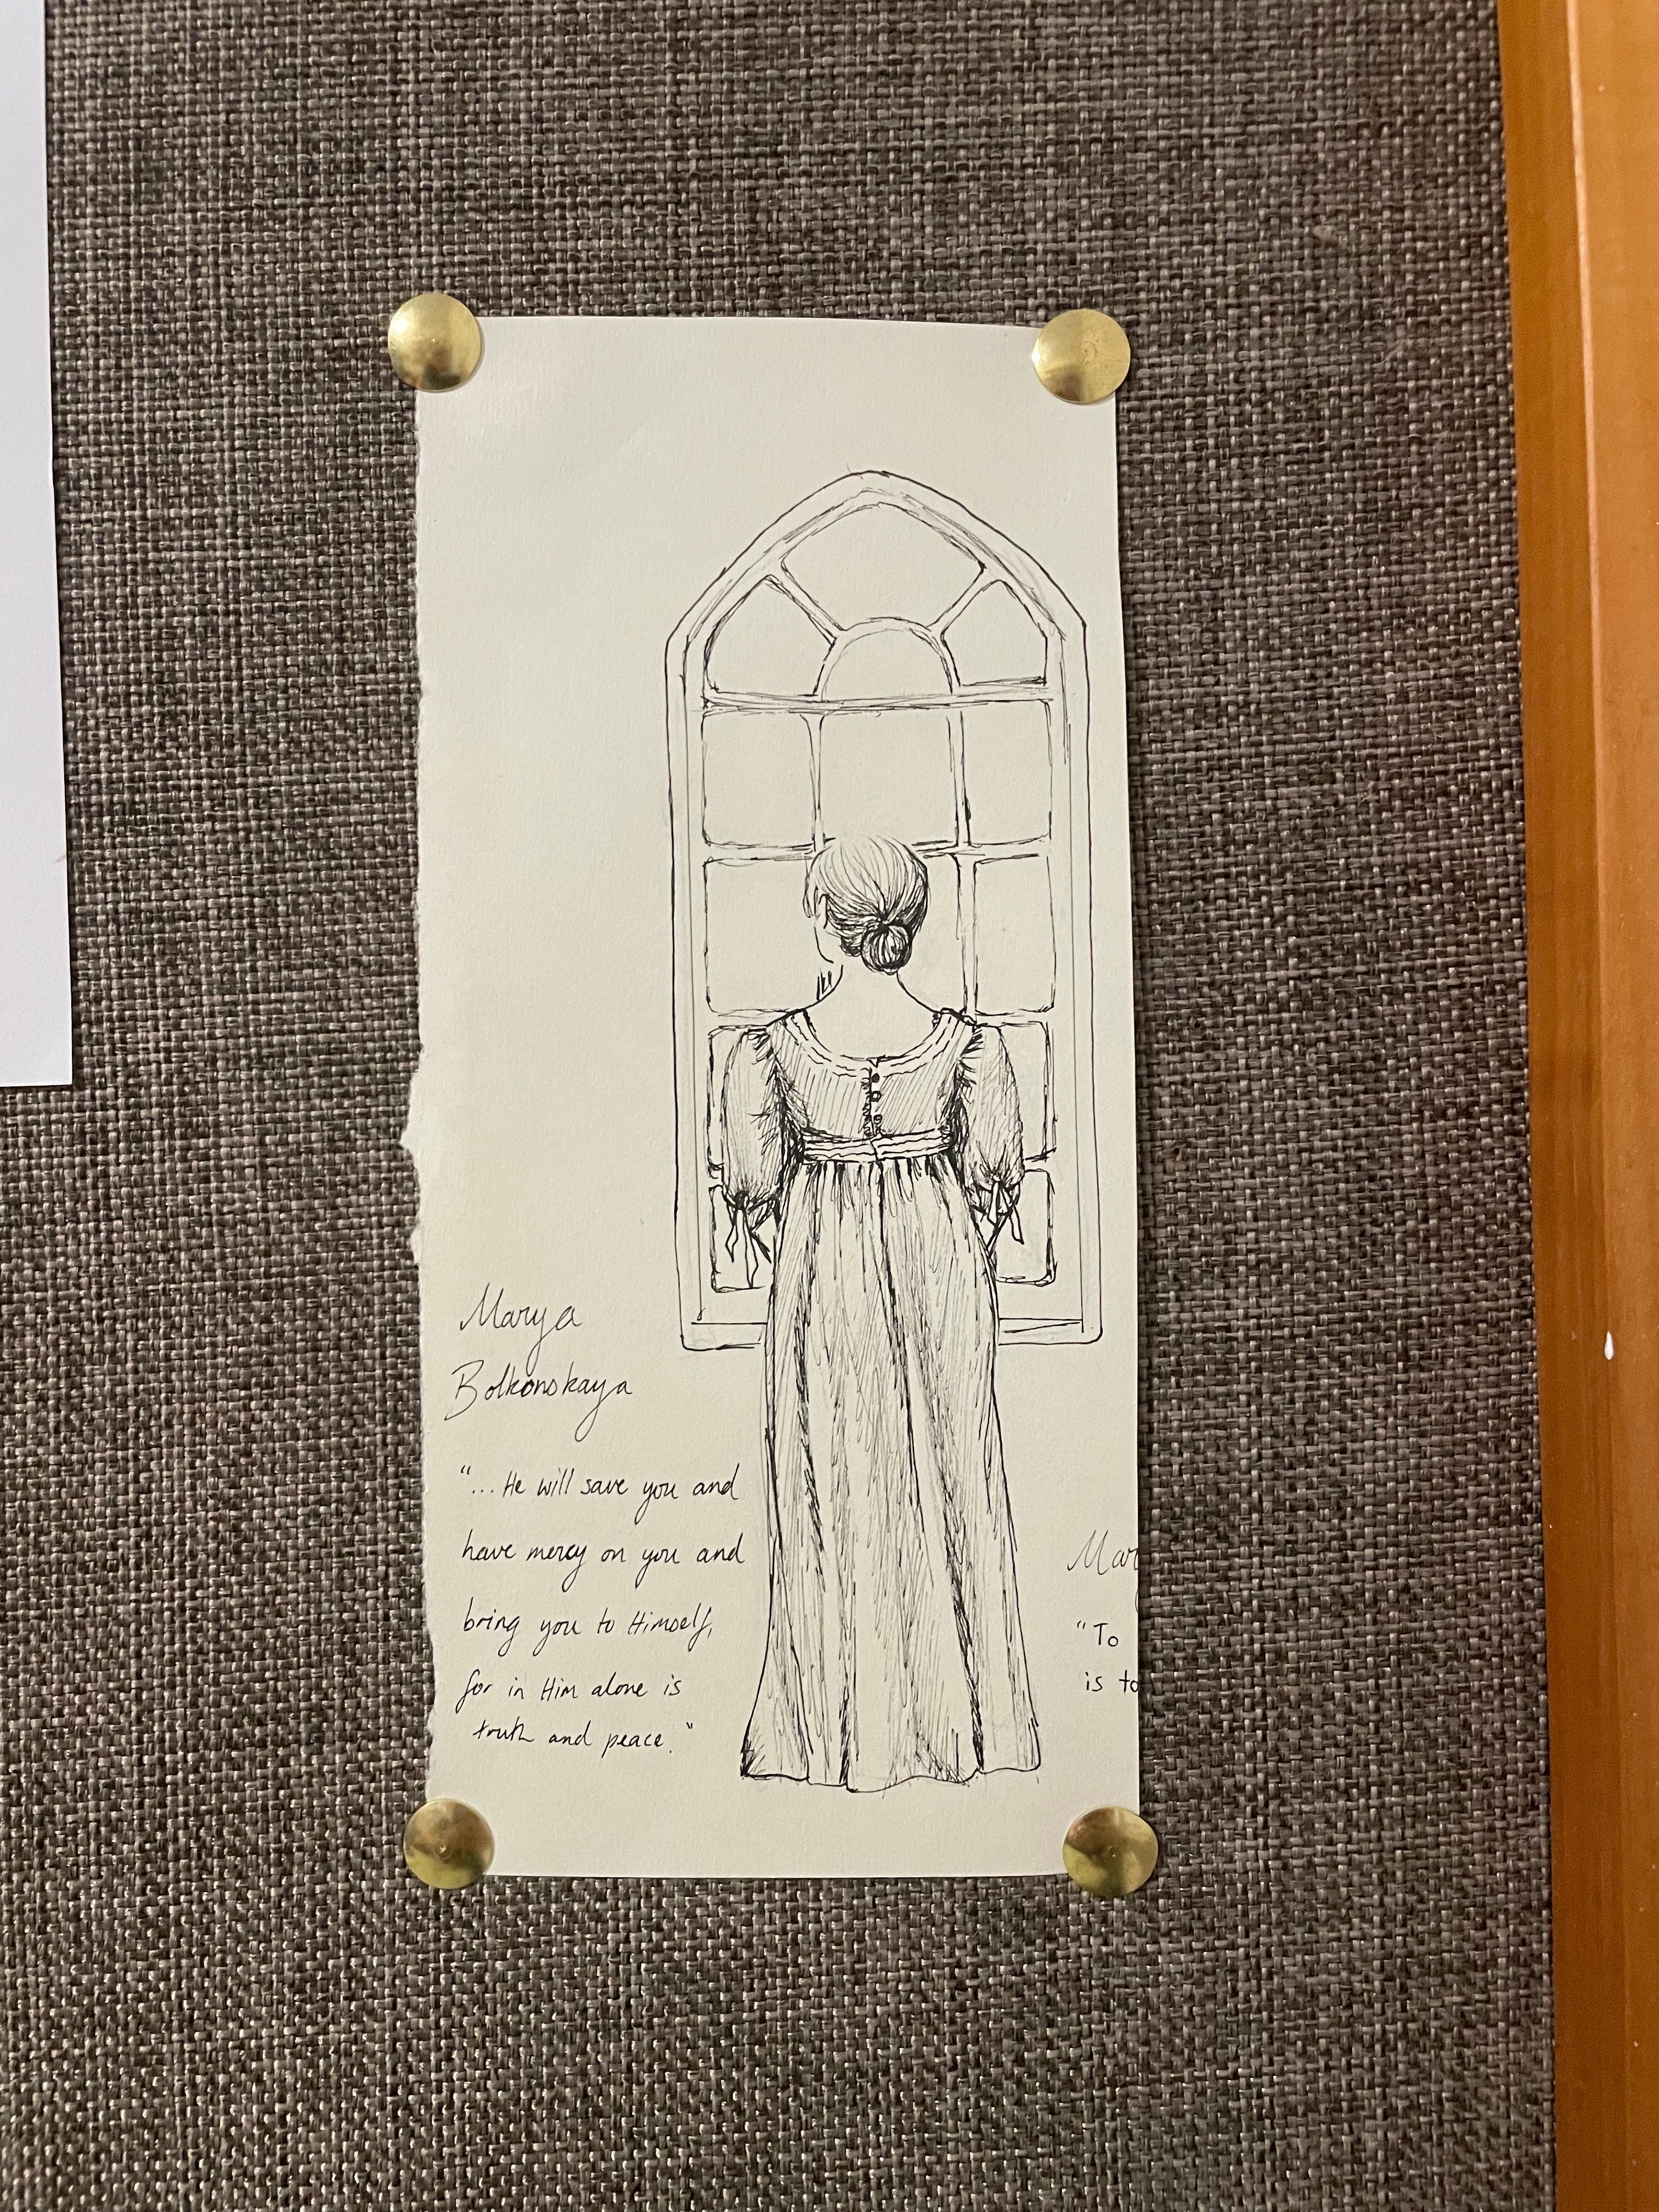 Marya
Bolkonskaya
"... He will save you and
have mercy on you and
bring you to Himself,
for in Him alone is
truth and peace."
Mar
"To
is to